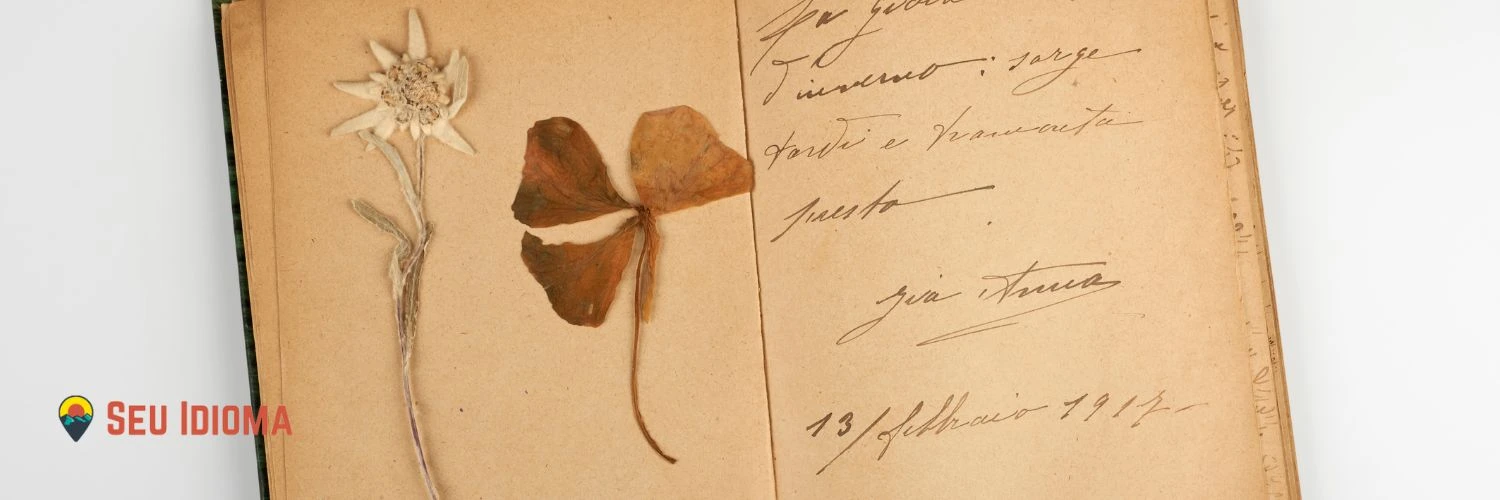 d'inverno: sorge
tardi e tramonta
presto
Zia Anna
13/febbraio 1917-
SEU IDIOMA